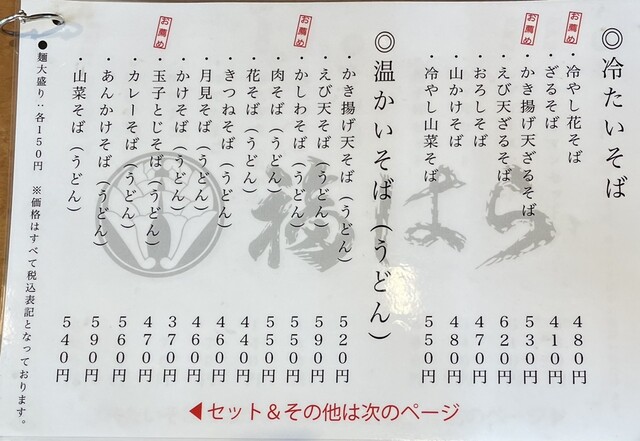 ◎冷たいそば
お薦め
・冷やし花そば 480円
・ざるそば 410円
お薦め
・かき揚げ天ざるそば 530円
・えび天ざるそば 620円
・おろしそば 470円
・山かけそば 480円
・冷やし山菜そば 550円
◎温かいそば(うどん)
・かき揚げ天そば(うどん) 520円
・えび天そば(うどん) 590円
お薦め
・かしわそば(うどん) 550円
・肉そば(うどん) 550円
・花そば(うどん) 440円
・きつねそば(うどん) 460円
・月見そば(うどん) 460円
・かけそば(うどん) 370円
お薦め
・玉子とじそば(うどん) 470円
・カレーそば(うどん) 560円
・あんかけそば(うどん) 590円
・山菜そば(うどん) 540円
●麺大盛り:各150円 ※価格はすべて税込表記となっております。
福はら
◀セット&その他は次のページ